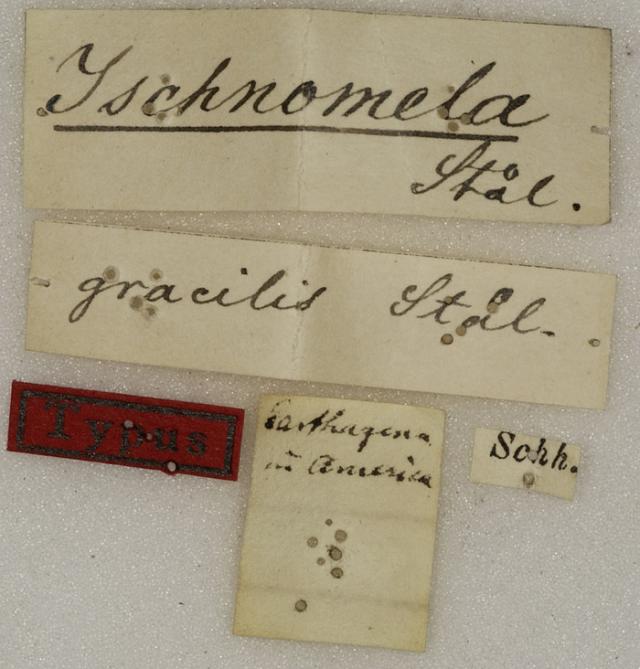 Ischnomela
Stål.
gracilis Stål.
Typus
Carthagena
in America
Schh.